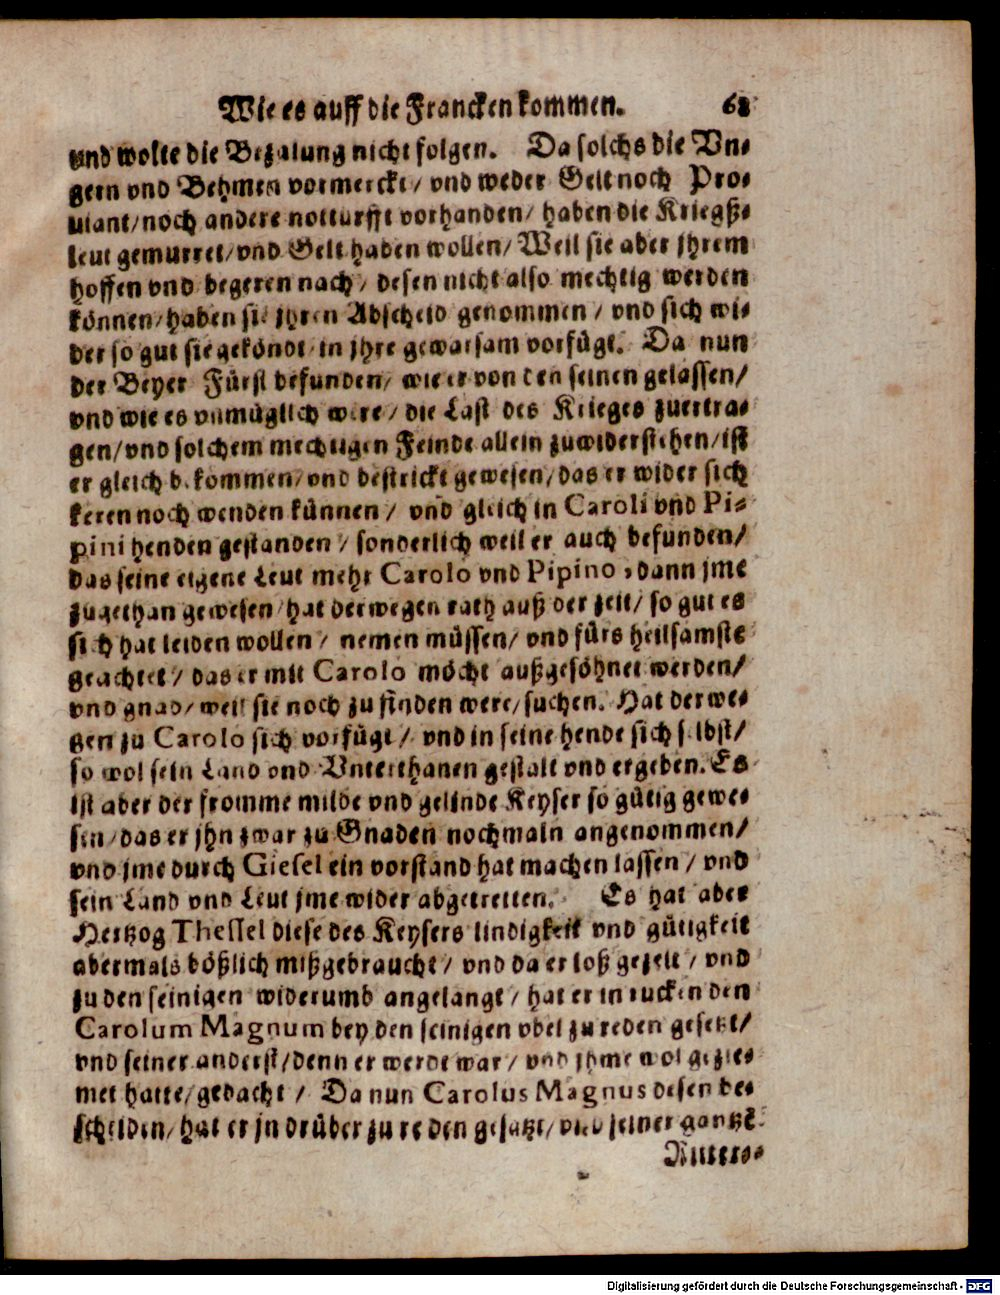 Wie es auff die Francken kommen. 68
vnd wolte die Bezalung nicht folgen. Da solchs die Vn⸗
gern vnd Behmen vormerckt/ vnd weder Gelt noch Pro⸗
uiant/noch andere notturfft vorhanden/ haben die Kriegß⸗
leut gemurret/vnd Gelt haben wollen/ Weil sie aber jhrem
hoffen vnd begeren nach/ desen nicht also mechtig werden
können/haben sie jhren Abscheid genommen/ vnd sich wi⸗
der so gut sie gekondt in jhre gewarsam vorfügt. Da nun
der Beyer Fürst befunden/ wie er von den seinen gelassen/
vnd wie es vnmüglich were/ die Last des Krieges zuertra⸗
gen/vnd solchem mechtigen Feinde allein zuwiderstehen/ist
er gleich bekommen/vnd bestrickt gewesen/das er wider sich
keren noch wenden künnen/ vnd gleich in Caroli vnd Pi⸗
pini henden gestanden/ sonderlich weil er auch befunden/
das seine eigene Leut mehr Carolo vnd Pipino, dann jme
zugethan gewesen/hat derwegen rath auß der zeit/ so gut es
sich hat leiden wollen/ nemen müssen/ vnd fürs heilsamste
geachtet/ das er mit Carolo möcht außgesöhnet werden/
vnd gnad/weil sie noch zu finden were/suchen. Hat derwe⸗
gen zu Carolo sich vorfügt/ vnd in seine hende sich selbst/
so wol sein Land vnd Vnterthanen gestalt vnd ergeben. Es
ist aber der fromme milde vnd gelinde Keyser so gütig gewe⸗
sen/das er jhn zwar zu Gnaden nochmaln angenommen/
vnd jme durch Giesel ein vorstand hat machen lassen/ vnd
sein Land vnd Leut jme wider abgetretten. Es hat aber
Hertzog Thessel diese des Keysers lindigkeit vnd gütigkeit
abermals bößlich mißgebraucht/ vnd da er loß gezelt/ vnd
zu den seinigen widerumb angelangt/ hat er in rucken den
Carolum Magnum bey den seinigen vbel zu reden gesetzt/
vnd seiner anderst/denn er werde war/ vnd jhme wol gezie⸗
met hatte/gedacht/ Da nun Carolus Magnus desen be⸗
scheiden/hat er jn drüber zu reden gesatzt/vnd seiner gantzē
Ritter⸗
Digitalisierung gefördert durch die Deutsche Forschungsgemeinschaft - DFG